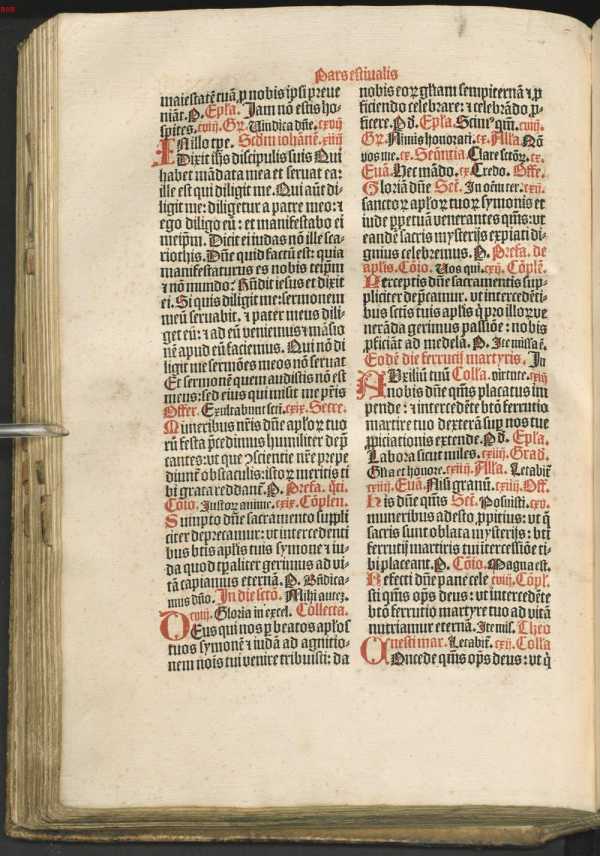 Pars estiualis
maiestatē tuā ꝓ nobis ipsi preue
niāt. P. Ep̄la. Jam nō estis ho-
spites. cviij. Gr̄. Vindica dn̄e. cxvij
IN illo tp̄e. Scd̄m iohānē. xiiij
Dixit ih̄s discipulis suis Qui
habet mādata mea et seruat ea:
ille est qui diligit me. Qui aūt di-
ligit me: diligetur a patre meo: ⁊
ego diligo eū: et manifestabo ei
meip̄m. Dicit ei iudas nō ille sca-
riothis. Dn̄e quid factū est: quia
manifestaturus es nobis teip̄m
⁊ nō mundo. Rn̄dit iesus et dixit
ei. Si quis diligit me: sermonem
meū seruabit. ⁊ pater meus dili-
get eū: ⁊ ad eū veniemus ⁊ māsio
nē apud eū faciemus. Qui nō di
ligit me sermōes meos nō seruat
Et sermonē quem audistis nō est
meus: sed eius qui misit me pr̄is
Offer. Exultabunt scti. cxix. Secre.
Muneribus nr̄is dn̄e aplōꝝ tuo
rū festa p̄cedimus humiliter dep̄
cantes: vt que ɔscientie nr̄e prepe
diunt̄ obstaculis: istoꝝ meritis ti
bi grata reddant̄. P. Prefa. q̄ti.
Cōio. Justoꝝ anime. cxix. Cōplen.
Sumpto dn̄e sacramento suppli
citer deprecamur: vt intercedenti
bus btīs aplīs tuis symone ⁊ iu-
da quod tp̄aliter gerimus ad vi-
tā capiamus eternā. P. Bn̄dica-
mus dn̄o. In die sctō. Mihi autez.
cviij. Gloria in excel. Collecta.
DEus qui nos ꝑ beatos aplōs
tuos symonē ⁊ iudā ad agnitio-
nem nōis tui venire tribuisti: da
nobis eoꝝ gl̄iam sempiternā ⁊ ꝓ
ficiendo celebrare: ⁊ celebrādo ꝓ-
ficere. P d. Ep̄la. Scim⁹ qm̄. cviij.
Gr̄. Nimis honorati. cx. All̄a. Nō
vos me. cx. Sentītia Clare sctōꝝ. cx.
Euā. Hec mādo. cx Credo. Offe.
Gloria dn̄e. Sct̄. In oēm ter. cxij.
sanctoꝝ aplōꝝ tuoꝝ symonis et
iude ꝑpetuā venerantes qm̄s: vt
eandē sacris mysterijs expiati di-
gnius celebremus. P. Prefa. de
aplīs. Cōio. Vos qui. cxij. Cōplē.
Perceptis dn̄e sacramentis sup-
pliciter dep̄camur. vt intercedēti-
bus sctis tuis aplīs q̄ ꝓ illoꝝ ve
nerāda gerimus passiōe: nobis
ꝓficiāt ad medelā. P. Ite missa ē.
Eodē die ferrucij martyris. In
virtute. cxiij
AUxiliū tuū Colla.
nobis dn̄e qm̄s placatus im
pende: ⁊ intercedēte btō ferrutio
martire tuo dexterā suꝑ nos tue
ꝓpiciationis extende. P d. Ep̄la.
Labora sicut miles. cxiiij. Grad.
Glīa et honore. cxiiij. All̄a. Letabit̄
cxiiij. Euā. Nisi granū. cxiiij. Off.
His dn̄e qm̄s Sct̄. Posuisti. cxv.
muneribus adesto ꝓpitius: vt q̄
sacris sunt oblata mysterijs: btī
ferrutij martiris tui intercessiōe ti-
bi placeant. P. Cōio. Magna est.
Refecti dn̄e pane cele cviij. Cōpl.
sti qm̄s ops̄ deus: vt intercedēte
btō ferrutio martyre tuo ad vitā
nutriamur eternā. Ite mis. Theo
nesti mar. Letabit̄. cxij. Colla
COncede qm̄s ops̄ deus: vt q̄